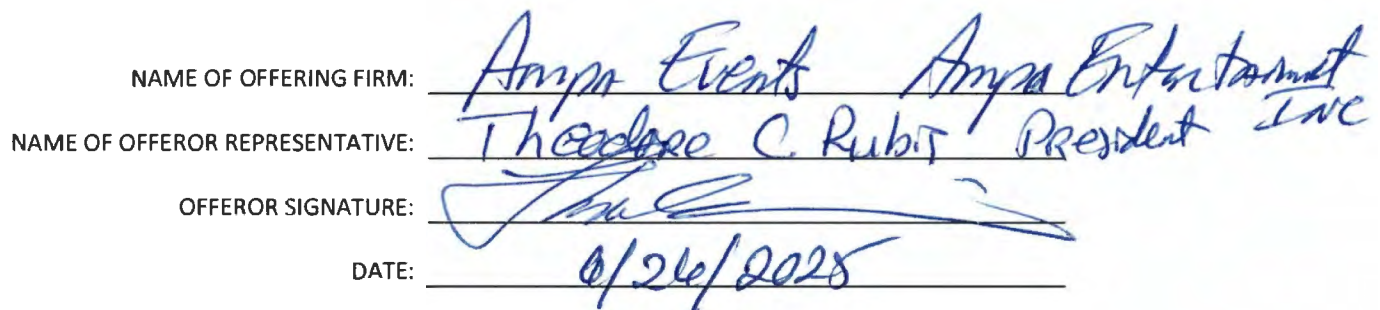 NAME OF OFFERING FIRM: Ampa Events Ampa Entertainment INC
NAME OF OFFEROR REPRESENTATIVE: Theodore C. Rubis President
OFFEROR SIGNATURE:
DATE: 6/26/2025